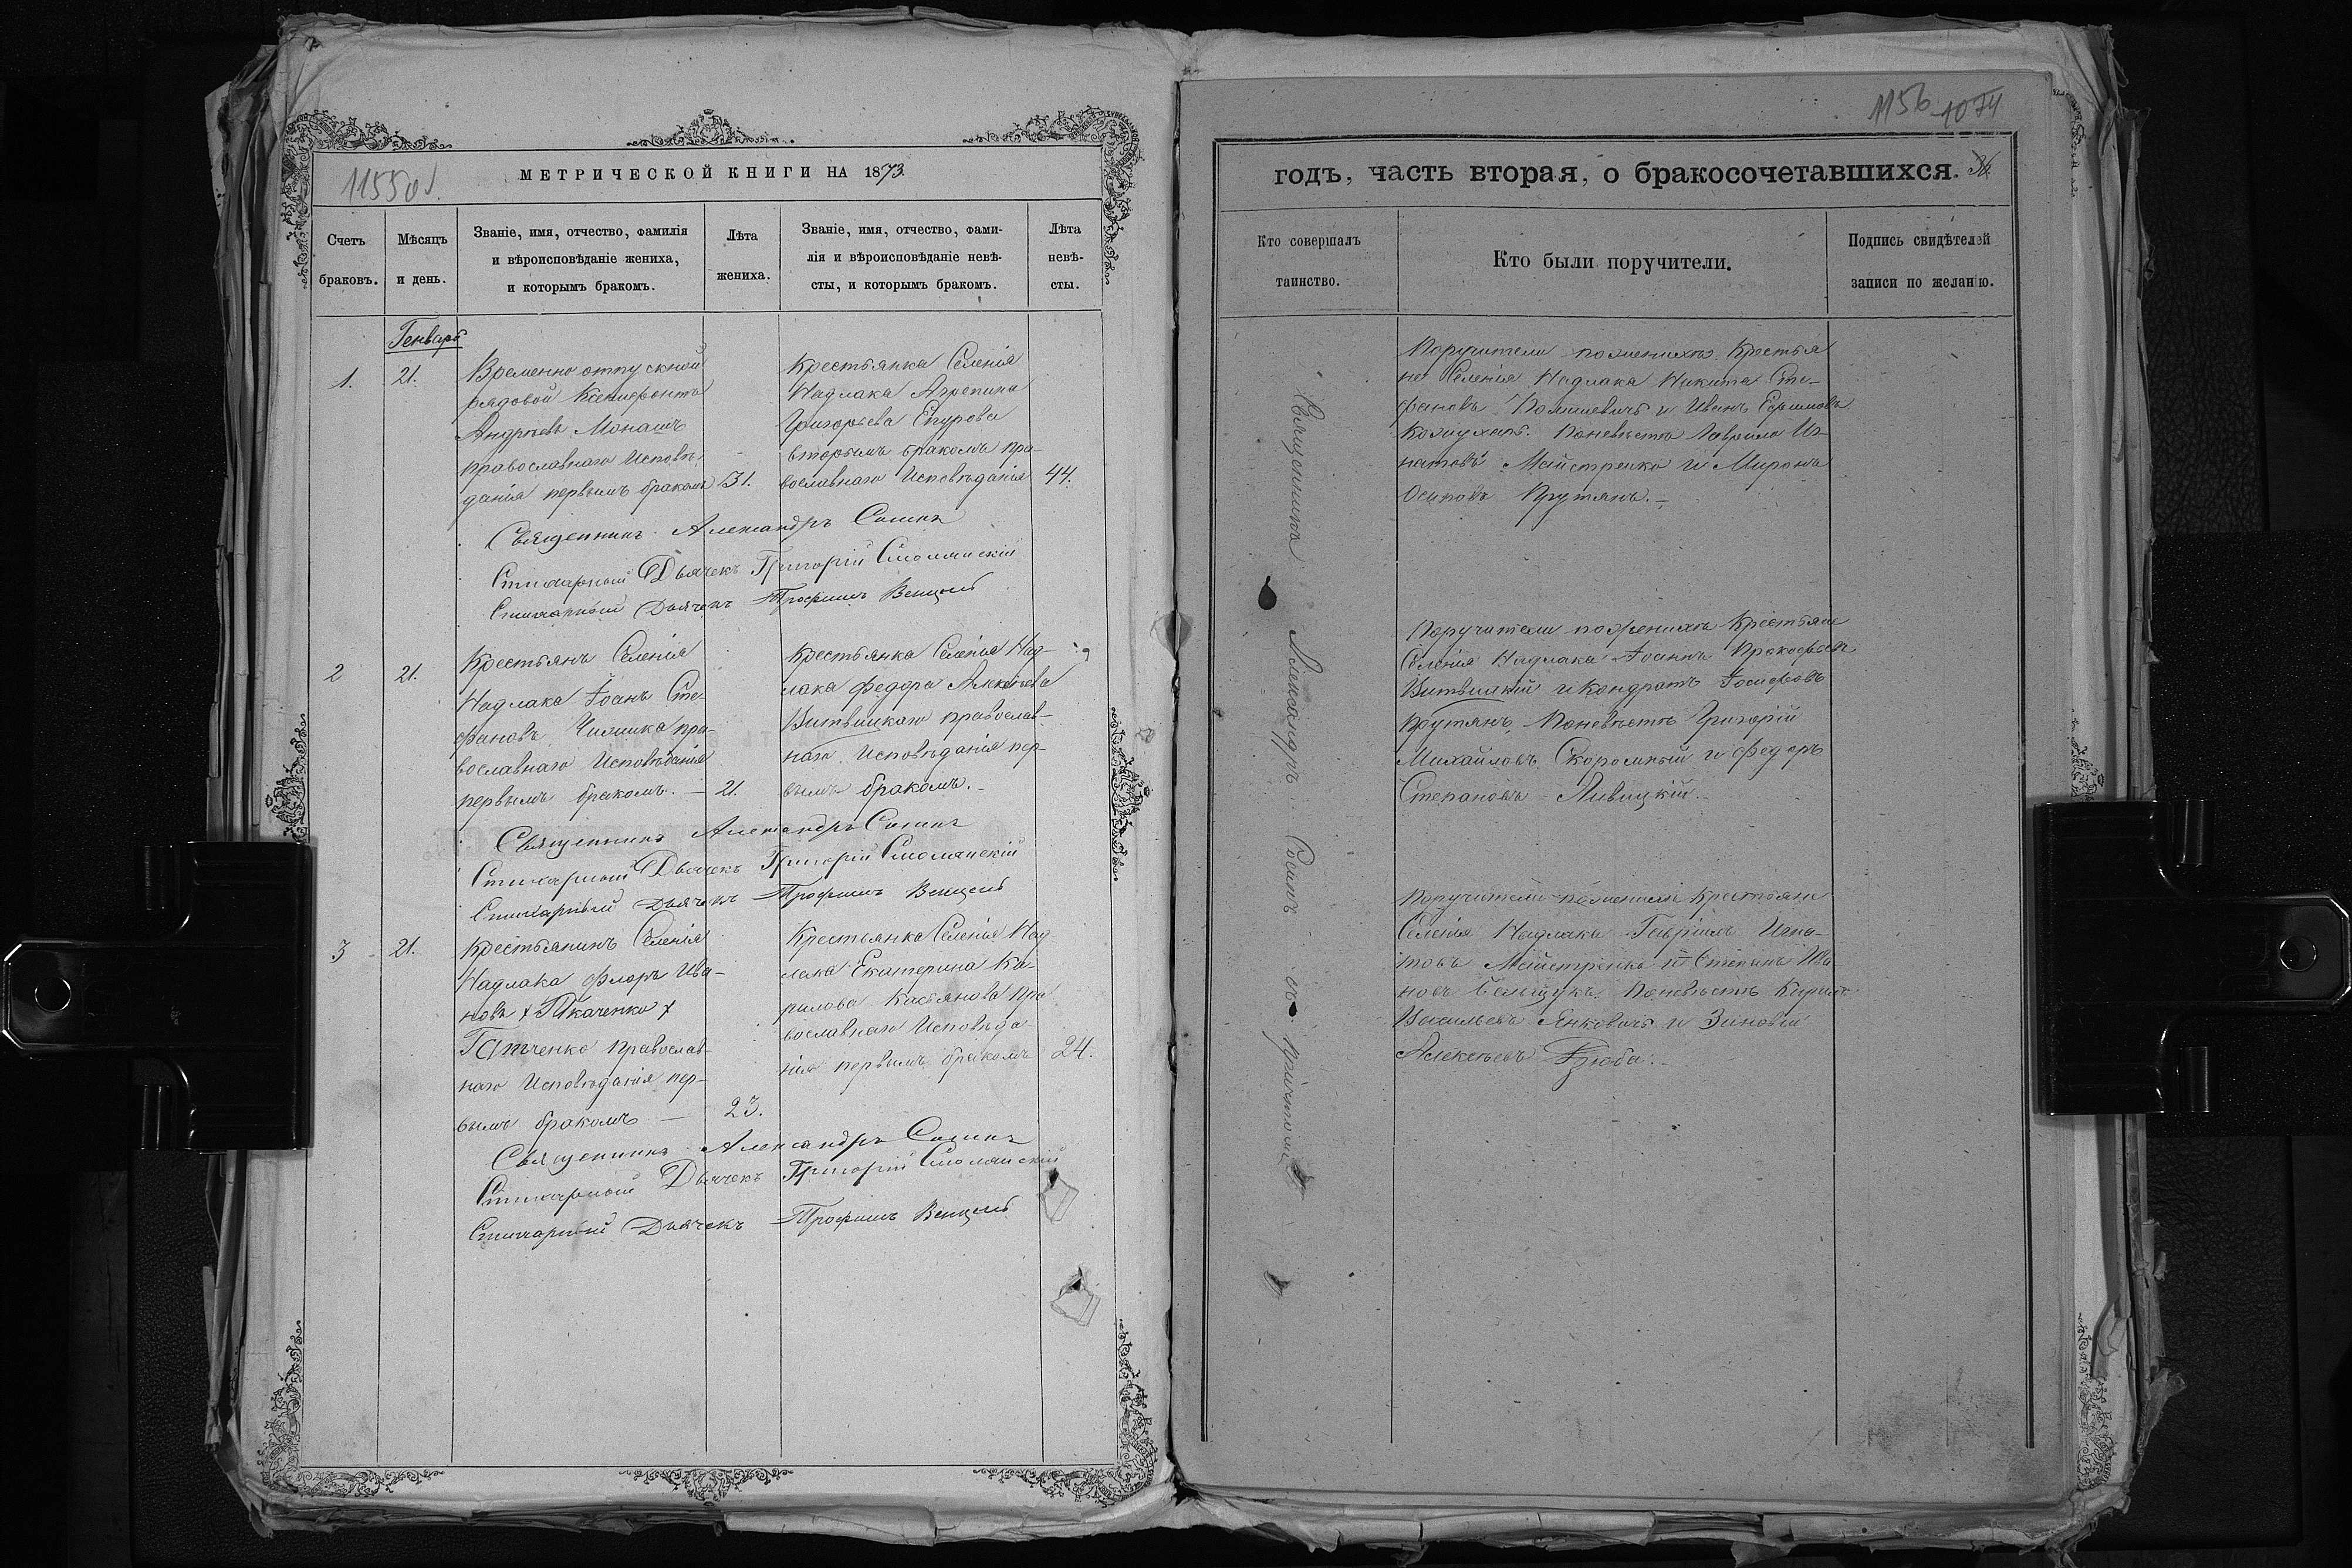 1155об.
МЕТРИЧЕСКОЙ КНИГИ НА 1873
Счетъ браковъ.
Мѣсяцъ и день.
Званіе, имя, отчество, фамилія
и вѣроисповѣданіе жениха,
и которымъ бракомъ.
Лѣта
жениха.
Званіе, имя, отчество, фами-
лія и вѣроисповѣданіе невѣ-
сты, и которымъ бракомъ.
Лѣта
невѣ-
сты.
Генварь
1.
21.
Временно отпускной
рядовой Ксенофонтъ
Андреевъ Монашъ
православнаго Исповѣ-
данія первымъ бракомъ
31.
Крестьянка Селенія
Надлака Агрепина
Григорьева
вторымъ бракомъ пра-
вославнаго Исповѣданія
44.
Священникъ Александръ
Стихарный Дьячекъ Григорій Смолянскій
Стихарный Дьячекъ Трофимъ Венцель
2
21.
Крестьянъ Селенія
Надлака Іоанъ Сте-
фановъ пра-
вославнаго Исповѣданія
первымъ бракомъ. —
21.
Крестьянка Селенія Над-
лака Федора Алексѣева
Витвицкаго православ-
наго Исповѣданія пер-
вымъ бракомъ. -
19
Священникъ Александръ
Стихарный Дьячекъ Григорій Смолянскій
Стихарный Дьячекъ Трофимъ Венцель
3
21.
Крестьянинъ Селенія
Надлака Флоръ Ива-
новъ х Ткаченко х
Гатченко православ-
наго Исповѣданія пер-
вымъ бракомъ —
23.
Крестьянка Селенія Над-
лака Екатерина Ка-
рилова Касьянова пра
вославнаго Исповѣда-
нія первымъ бракомъ
24.
Священникъ Александръ
Стихарный Дьячекъ Григорій Смолянскій
Стихарный Дьячекъ Трофимъ Венцель
1156
1074
годъ, часть вторая, о бракосочетавшихся.
Кто совершалъ
таинство.
Кто были поручители.
Подпись свидѣтелей
записи по желанію.
Священникъ Александръ съ причтомъ
Поручители по женихѣ Крестья
не Селенія Надлака Никита Сте-
фановъ и Иванъ Ефимовъ
Кожухарь. По невѣстѣ Гаврило Иг-
натовъ Майстренко и Миронъ
Осиповъ Прутянъ. —
Поручители по женихѣ Крестьяне
Селенія Надлака Іоаннъ Прокофьевъ
Витвицкій и Кондратъ Іосифовъ
Прутянъ, По невѣстѣ Григорій
Михайловъ Скоромный и Федоръ
Степановъ Ливицкій. -
Поручители по женихѣ Крестьяне
Селенія Надлака Гавріилъ Игна-
товъ Майстренко и Степанъ Ива
новъ По невѣстѣ Кирилъ
Васильевъ Янковичъ и Зиновій
Алексѣевъ Дзюба. —